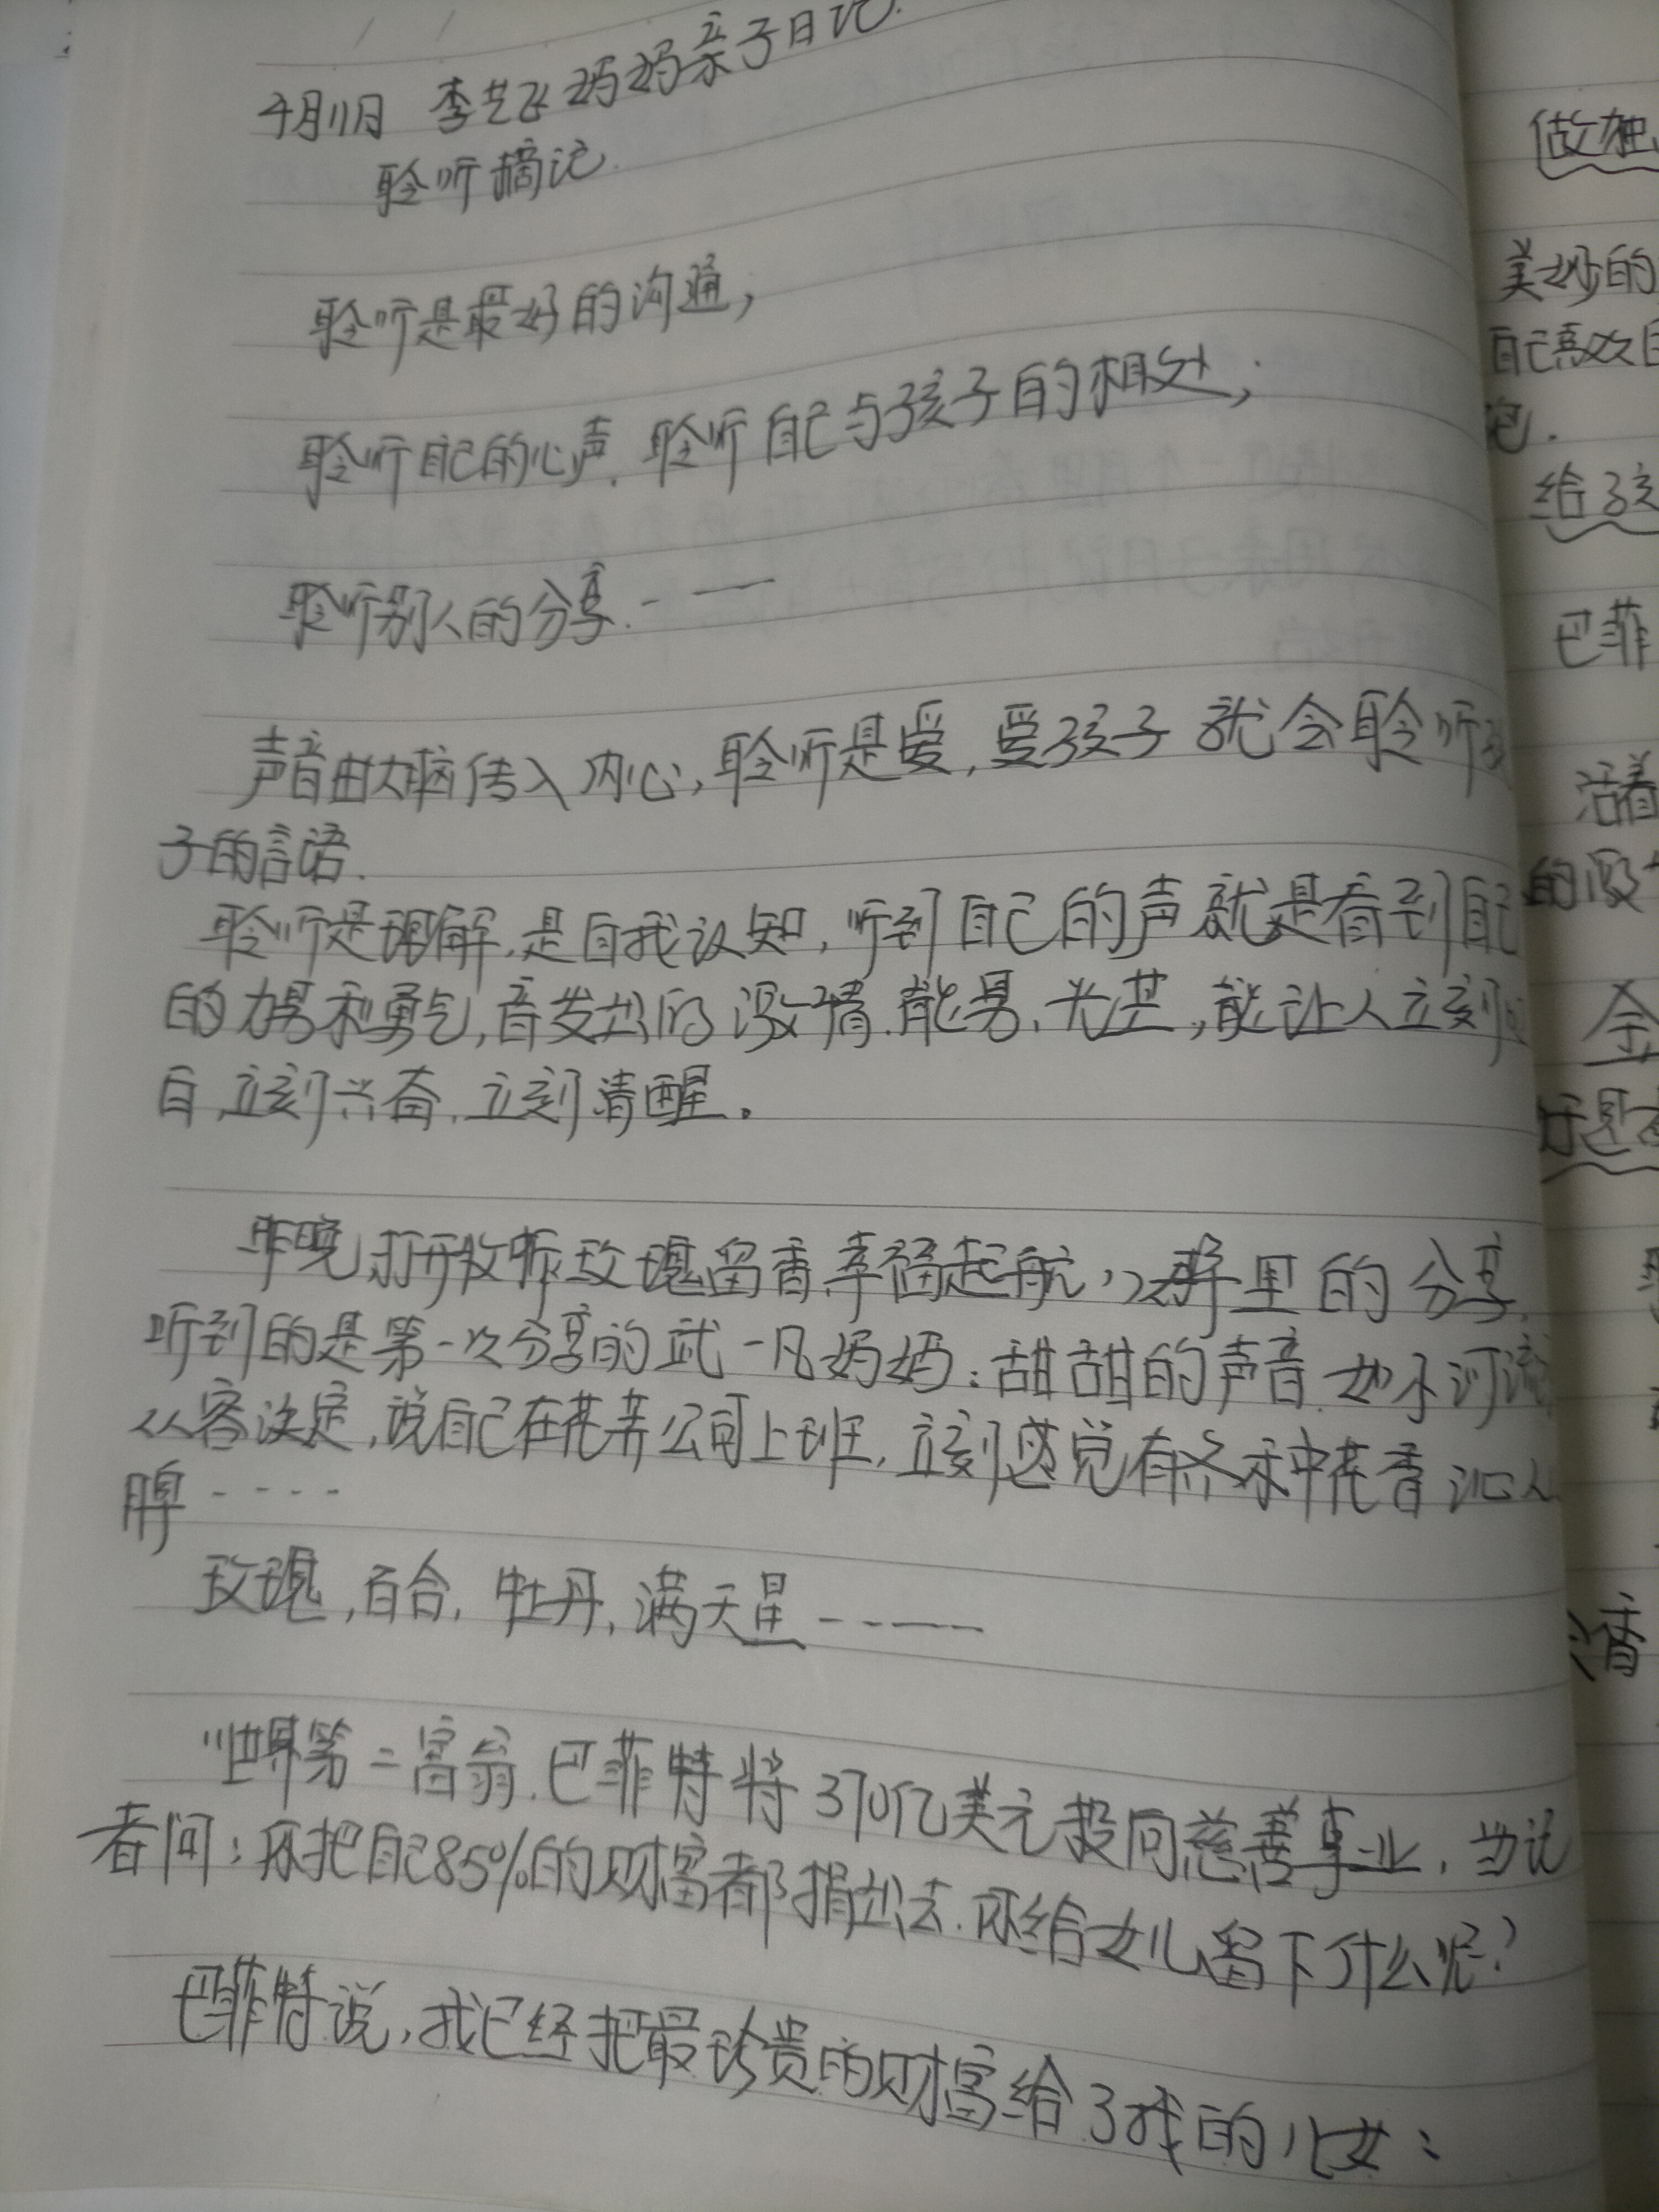 4月11日 李艺飞妈妈亲子日记.
聆听摘记.
聆听是最好的沟通,
聆听自己的心声.聆听自己与孩子的相处;
聆听别人的分享.……
声音由大脑传入内心,聆听是爱,爱孩子就会聆听孩
子的言语.
聆听是理解.是自我认知,听到自己的声就是看到自己
的力量和勇气,音发出的激情.能量.光芒,能让人立刻
白,立刻兴奋.立刻清醒。
昨晚,打开牧师玫瑰留香幸福起航,群里的分享.
听到的是第一次分享的武一凡妈妈:甜甜的声音.如小河流
从容淡定,说自己在花卉公司上班.立刻感觉有各种花香沁人
脾……
玫瑰,百合,牡丹,满天星……
世界第二富翁.巴菲特将370亿美元投向慈善事业.当记
者问:你把自己85%的财富都捐出去.你给女儿留下什么呢?
巴菲特说,我已经把最珍贵的财富给了我的儿女:
做独
美妙的
自己喜欢
给孩
巴菲
活着
的
是
香